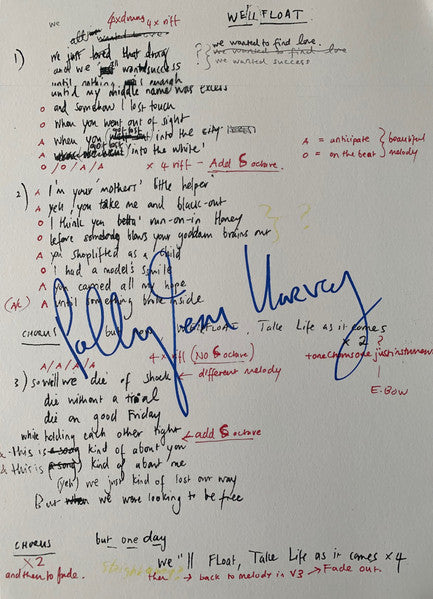 WE'LL FLOAT.
we 4xdrums 4x riff
all wanted love
we wanted to find love.
1) we just loved that dizzy ? we wanted to find love
and we wanted success ? we wanted success
until nothing was enough
until my middle name was excess
O and somehow I lost touch
O when you went out of sight
A when you got lost into the city
A got lost into the white'
O / O / A / A x 4 riff - Add 8 octave.
A = anticipate } beautiful
O = on the beat } melody
2) A I'm your mothers' little helper'
A yeh you take me and black-out
O I think you betta' run-on-in Honey
O before somebody blows your goddam brains out
A you shoplifted as a child
O I had a model's smile
A you carried all my hope
(A/C) A until something broke inside
CHORUS but we WE'LL FLOAT, Take Life as it comes
x 2 ?
A/A/A/A 4 x riff (No 8 octave)
E-Bow
Polly Jean Harvey
3) so well we die of shock ← different melody
die without a trial
die on good Friday
while holding each other tight ← add 8 octave
this is (a song) kind of about you
& this is (a song) kind of about me
(yeh) we just kind of lost our way
But when we were looking to be free
CHORUS but one day
x2 we''ll Float, Take Life as it comes x4
and then to fade. then → back to melody in V3 → Fade out.